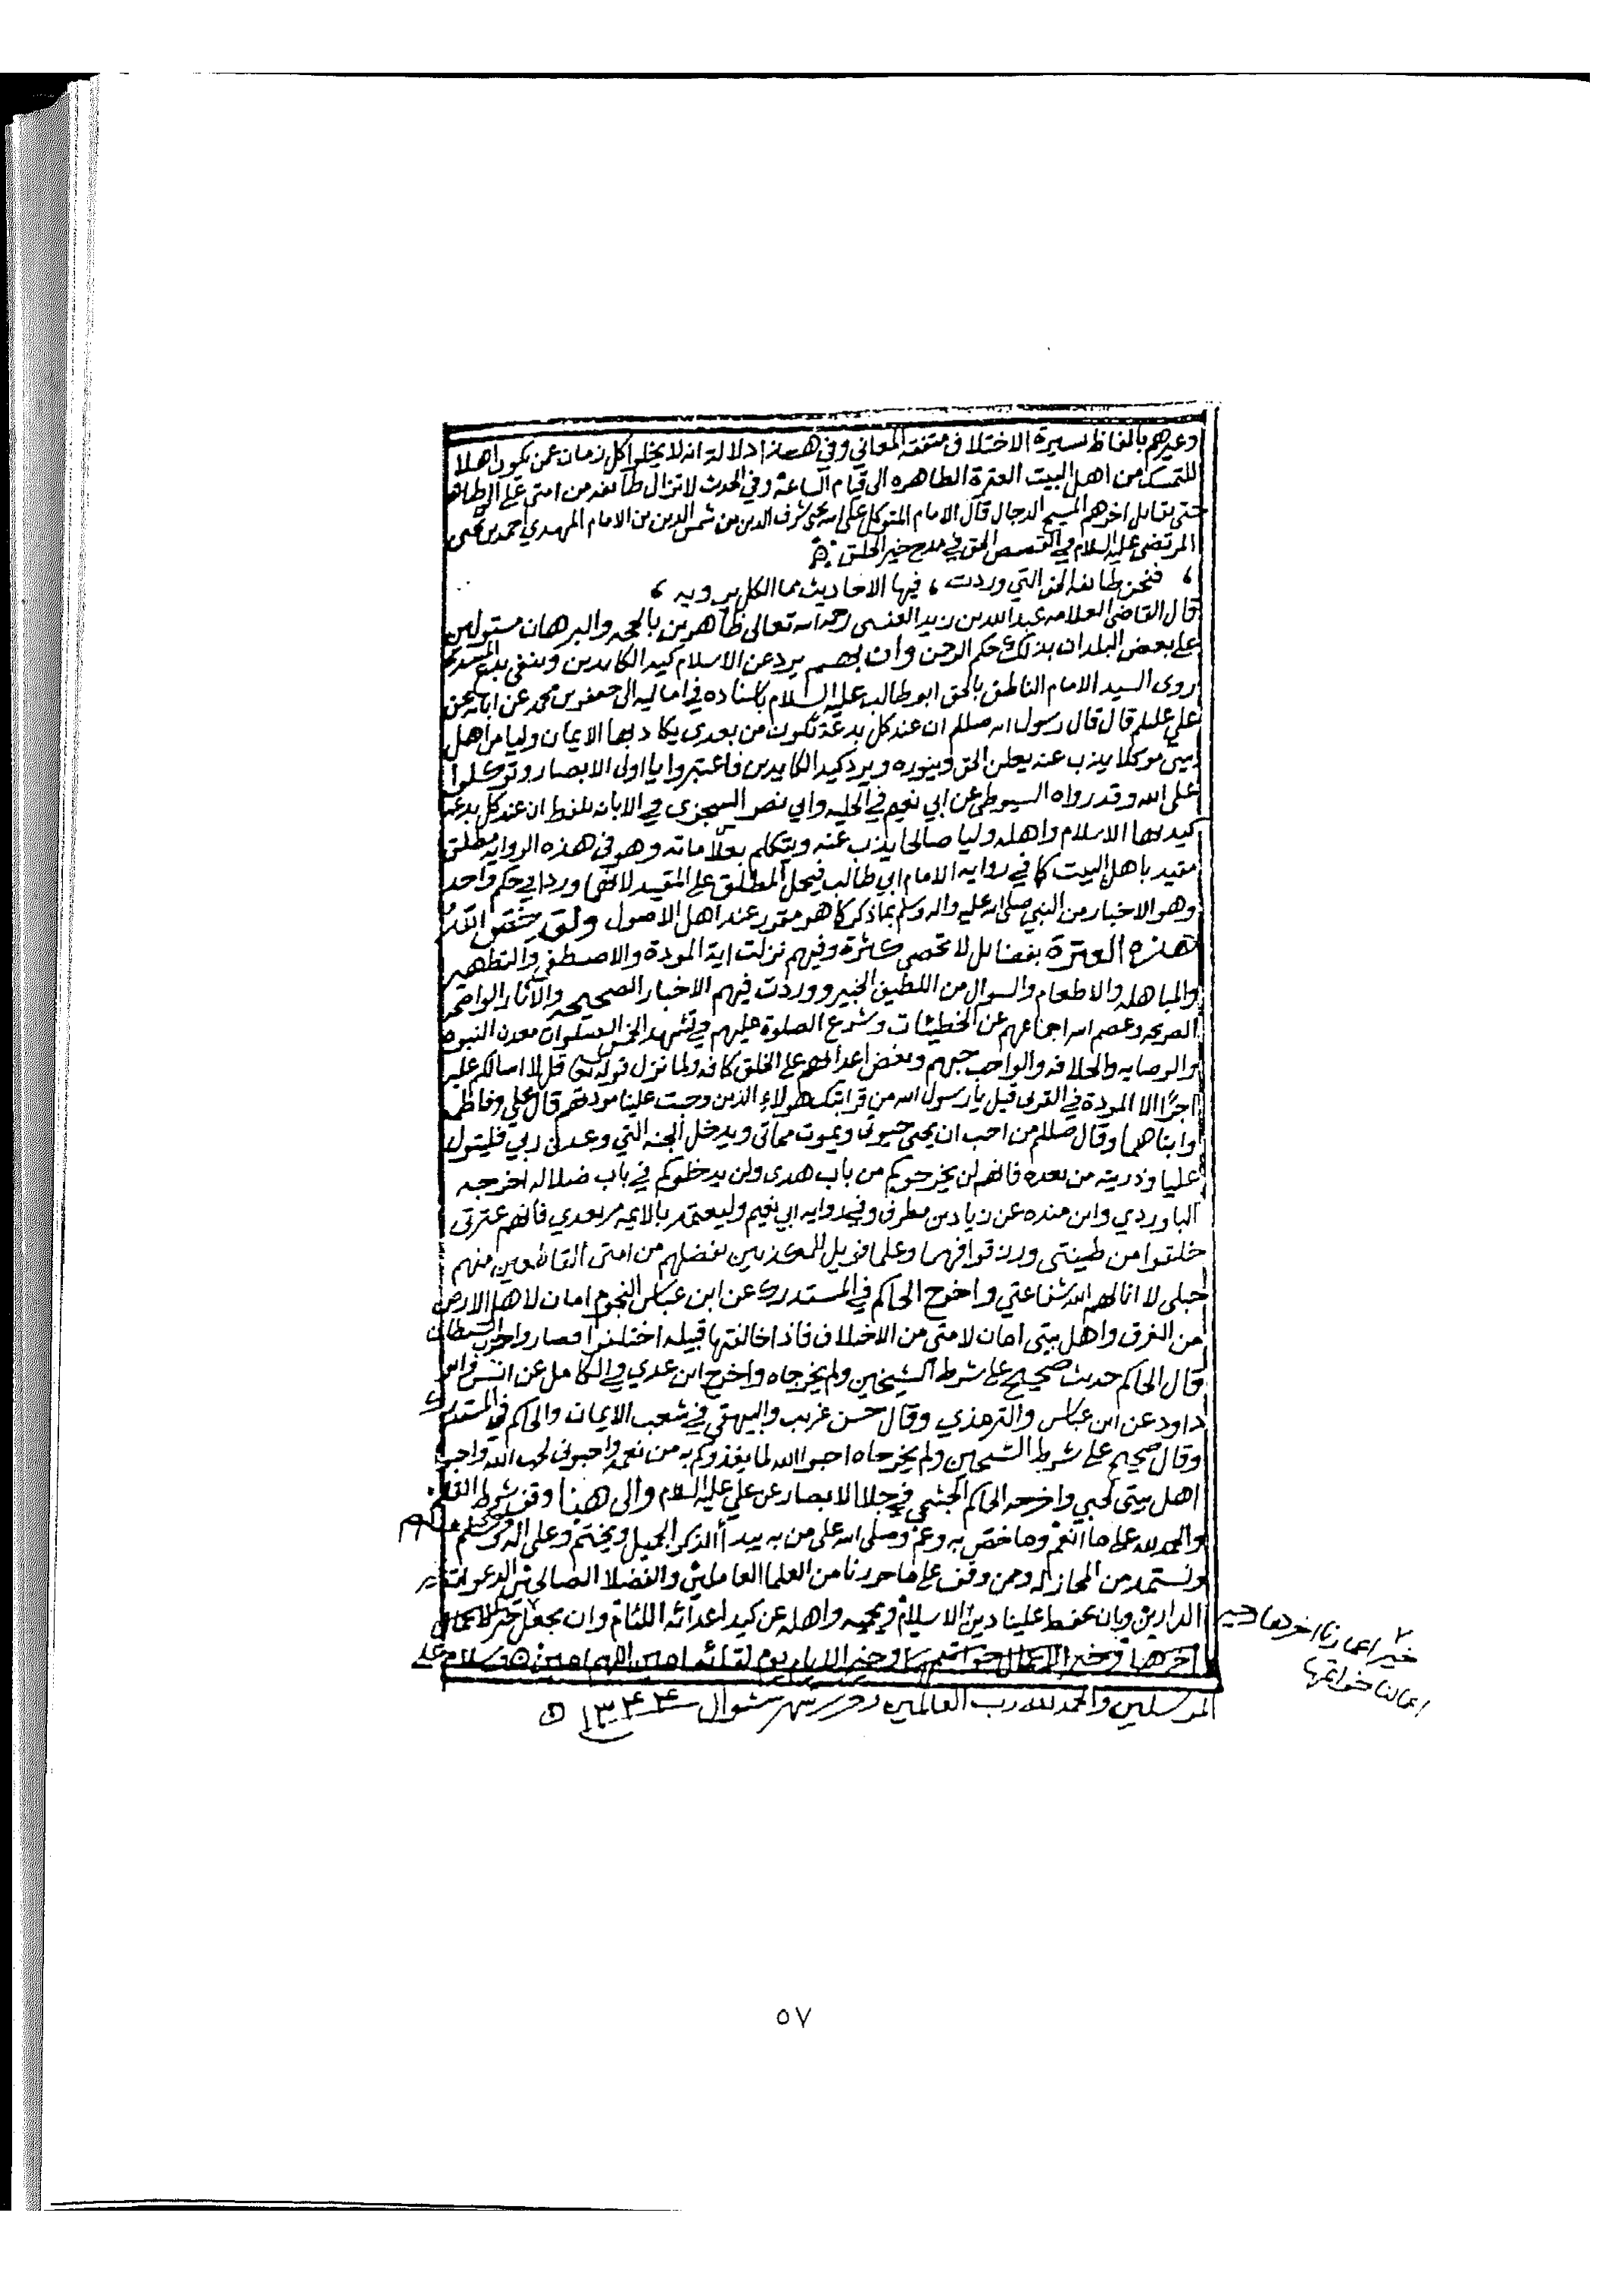 وغيرهم بالفاظ يسيرة الاختلاف متفقة المعاني وفي هذا دلالة انه لا يخلو كل زمان عمن يكون اهلا
للتمسك من اهل البيت العترة الطاهره الى قيام الساعة وفي الحدث لا تزال طائفه من امتي على
حتى يقاتل اخرهم المسيح الدجال قال الامام المتوكل على الله يحيى شرف الدين بن شمس الدين بن الامام المهدي احمد بن يحيى
المرتضى عليه السلام في القصص الحق في مدح خير الخلق
فنحن طائفه الحق التي وردت ، فيها الاحاديث مما الكل يرويه ،
قال القاضي العلامه عبد الله بن زيد العنسي رحمه الله تعالى ظاهرين بالحجه والبرهان مستولين
على بعض البلدان بذلك حكم الرحمن وان بهم يرد عن الاسلام كيد الكايدين وينفى بدع
روى السيد الامام الناطق بالحق ابو طالب عليه السلام باسناده في اماليه الى جعفر بن محمد عن ابائه عن
علي عليلم قال قال رسول الله صللم ان عند كل بدعة تكون من بعدي يكاد بها الايمان وليا من اهل
بيتي موكلا يذب عنه يعلن الحق وينوره ويرد كيد الكايدين فاعتبروا يا اولى الابصار وتوكلوا
على الله وقد رواه السيوطي عن ابي نعيم في الحليه وابي نصر السجزي في الابانه بلفظ ان عند كل بدعه
كيد بها الاسلام واهله وليا صالحا يذب عنه ويتكلم بعلاماته وهو في هذه الروايه مطلق
مقيد باهل البيت كما في روايه الامام ابي طالب فيحمل المطلق على المقيد لانهما وردا في حكم واحد
وهو الاخبار من النبي صلى الله عليه واله وسلم بما ذكر كما هو مقرر عند اهل الاصول ولقد خص الله
هذه العترة بفضائل لا تحصى كثرة وفيهم نزلت اية المودة والاصطفى والتطهير
والمباهله والاطعام والسوال من اللطيف الخبير ووردت فيهم الاخبار الصحيحه والآثار الواضحه
الصريحه وعصم الله اجماعهم عن الخطيئات وشرع الصلوة عليهم في تشهد الخمس الصلوات معدن النبوه
والوصايه والخلافه والواجب حبهم وبغض اعدائهم على الخلق كافه ولما نزل قوله تعالى قل لا اسالكم عليه
اجرًا الا المودة في القربى قيل يا رسول الله من قرابتك هولاء الذين وجبت علينا مودتهم قال علي وفاطمه
وابناهما وقال صللم من احب ان يحيى حيوتي ويموت مماتي ويدخل الجنه التي وعدني ربي فليتول
عليا وذريته من بعده فانهم لن يخرجوكم من باب هدى ولن يدخلوكم في باب ضلاله اخرجه
الباوردي وابن منده عن زياد بن مطرف وفي روايه ابي نعيم وليعتمد بالايمه من بعدي فانهم عترتي
خلقوا من طينتي ورزقوا فهما وعلما فويل للمكذبين بفضلهم من امتي القاطعين منهم
حبلى لا انالهم الله شفاعتي واخرج الحاكم في المستدرك عن ابن عباس النجوم امان لاهل الارض
من الغرق واهل بيتي امان لامتي من الاختلاف فاذا خالفتها قبيله اختلفوا فصاروا حزب الشيطان
قال الحاكم حديث صحيح على شرط الشيخين ولم يخرجاه واخرج ابن عدي في الكامل عن انس وابو
داود عن ابن عباس والترمذي وقال حسن غريب والبيهقي في شعب الايمان والحاكم في المستدرك
وقال صحيح على شرط الشيخين ولم يخرجاه احبوا الله لما يغذوكم به من نعمه واحبوني لحب الله واحبوا
اهل بيتي لحبي واخرجه الحاكم الجشمي في جلا الابصار عن علي عليه السلام والى هنا وقف شرط القلم
والحمد لله على ما انعم وما خص به وعم وصلى الله على من به يبدأ الذكر الجميل ويختم وعلى اله وسلم
ونستمد من المجاز له ومن وقف على ما حررنا من العلما العاملين والفضلا الصالحين الدعو
الدارين وبان يحفظ علينا دين الاسلام ويحميه واهله عن كيد اعدائه اللئام وان يجعل خير اعمالنا
اخرها وخير الاعمال خواتمها وخير الايام يوم لقائه امين اللهم امين وسلام على
المرسلين والحمد لله رب العالمين شهر شوال ١٣٤٤
٢ خير اعمارنا اخرها وخير
اعمالنا خواتمها
٥٧